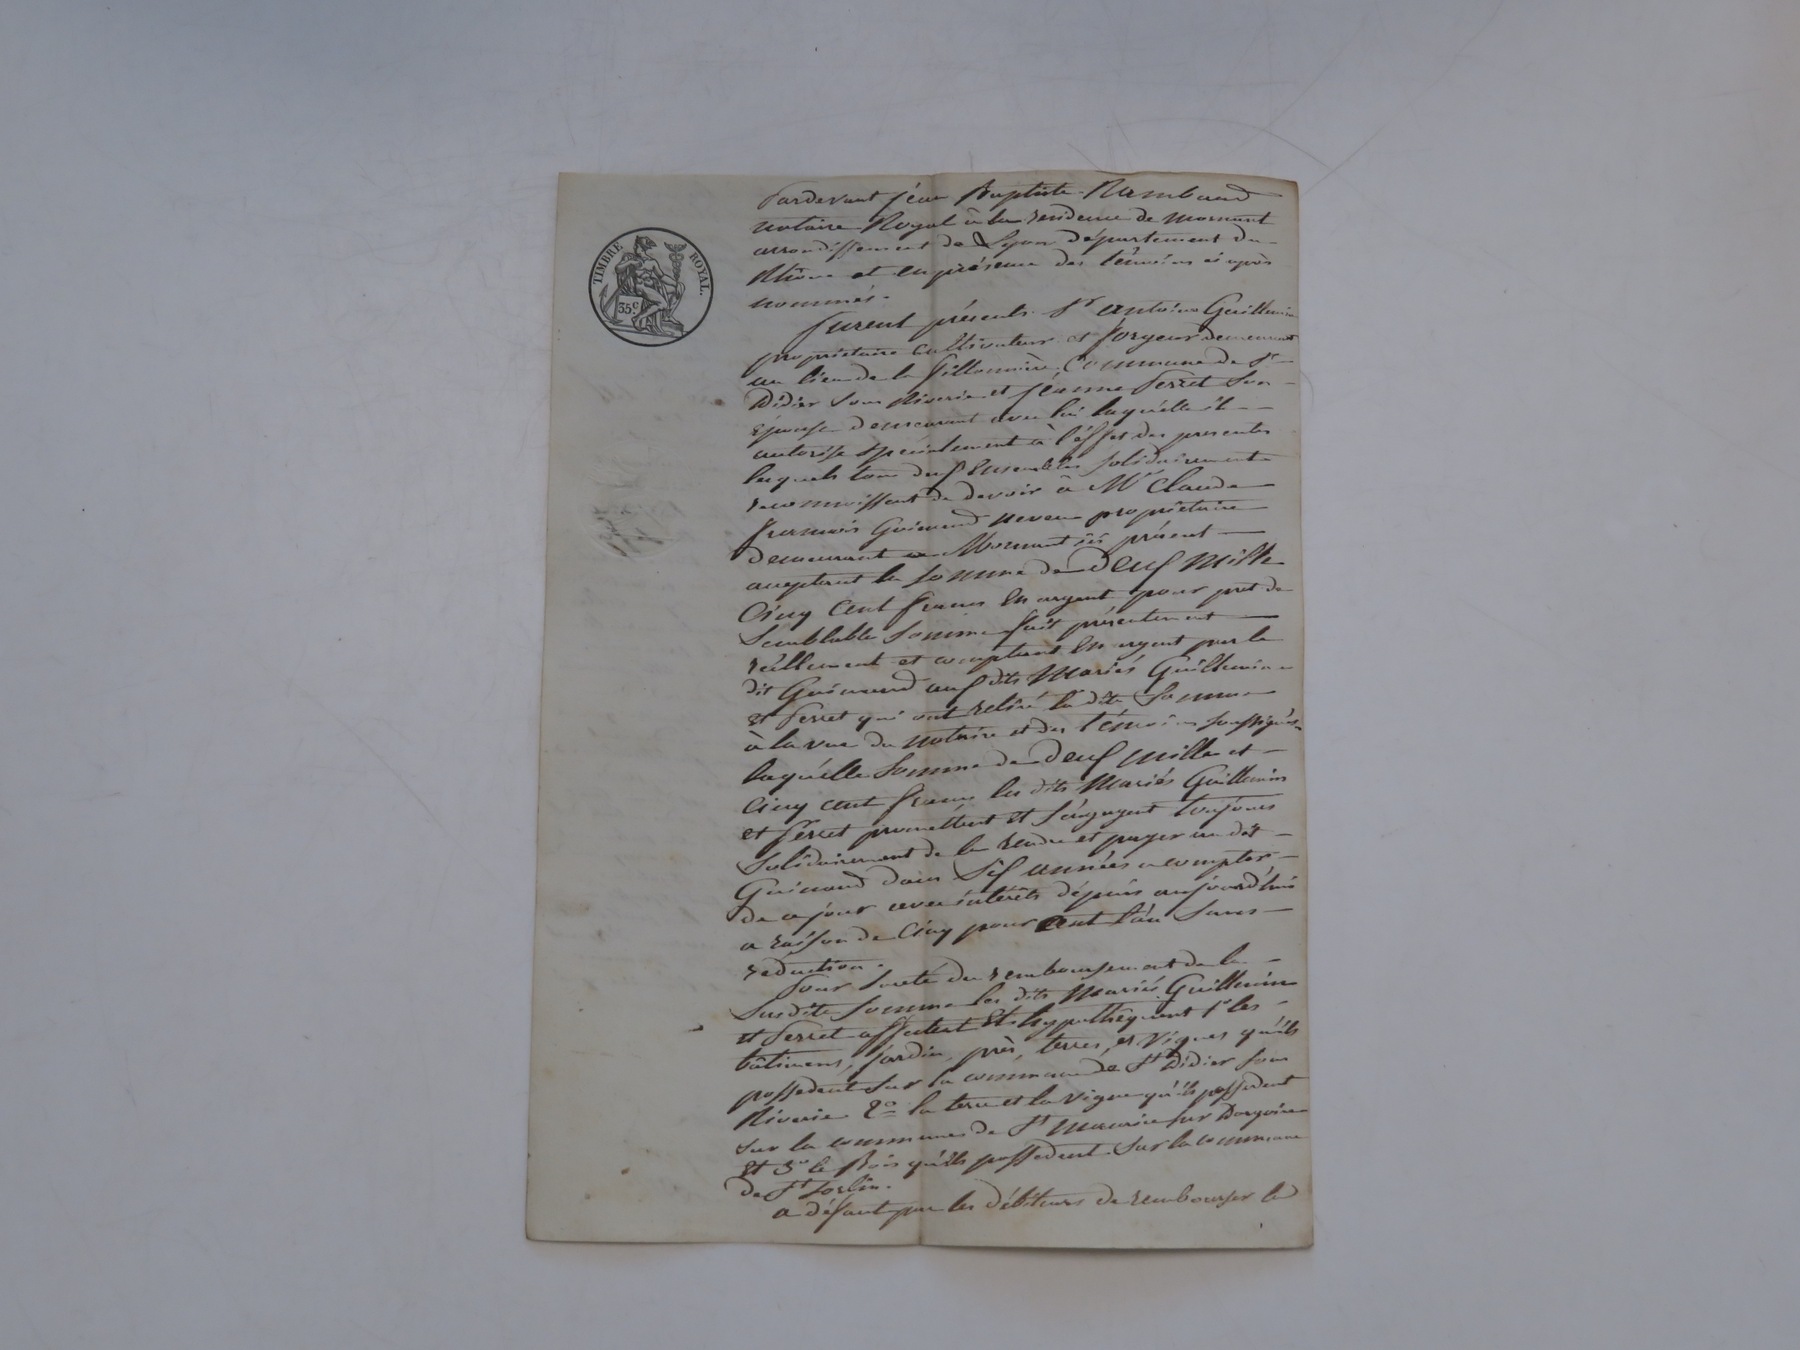 TIMBRE ROYAL.
35 c
Pardevant Jéan Baptiste Rambaud
notaire Royal à la residence de Mornant
arrondissement de Lyon département du
Rhône et en présence des témoins ci après
nommés.
furent présents Sr antoine Guillemin
propriétaire cultivateur et forgeur demeurant
au lieu de la fillonnière Commune de St
Didier sous Riverie et Jéanne Ferret son
épouse demeurant avec lui laquélle il
autorise spécialement à l'éffet des presentes
lesquels tous deux Ensembles solidairement
reconnoissent de devoir à Mr Claude
francois Guinand neveu propriétaire
demeurant a Mornant ici présent
acceptant la somme de Deux Mille
Cinq Cent francs En argent pour pret de
Semblable somme fait présentement
réellement et comptant En argent par le
dit Guinand aux dits Mariés Guillemin
et Ferret qui ont retiré la dite Somme
à la vue du notaire et des témoins soussignés
laquélle somme de Deux mille et
Cinq cent francs les dits Mariés Guillemin
et Ferret promettent et s'engagent toujours
solidairement de la rendre et payer au dit
Guinand dans Six années a compter
de ce jour avec intérêts dépuis aujourd'hui
a raison de Cinq pour Cent l'an Sans
réduction.
Pour sureté du remboursement de la
susdite somme les dits Mariés Guillemin
et Ferret affectent Et hypothéquent 1o les
bâtimens, jardin, près, terres, et Vignes qu'ils
possedent sur la commune de St Didier sous
Riverie 2o la terre et la vigne qu'ils possedent
sur la commune de St Maurice sur Dargoire
Et 3o le Bois qu'ils possedent sur la commune
de St Sorlin.
a défaut par les débiteurs de rembourser le